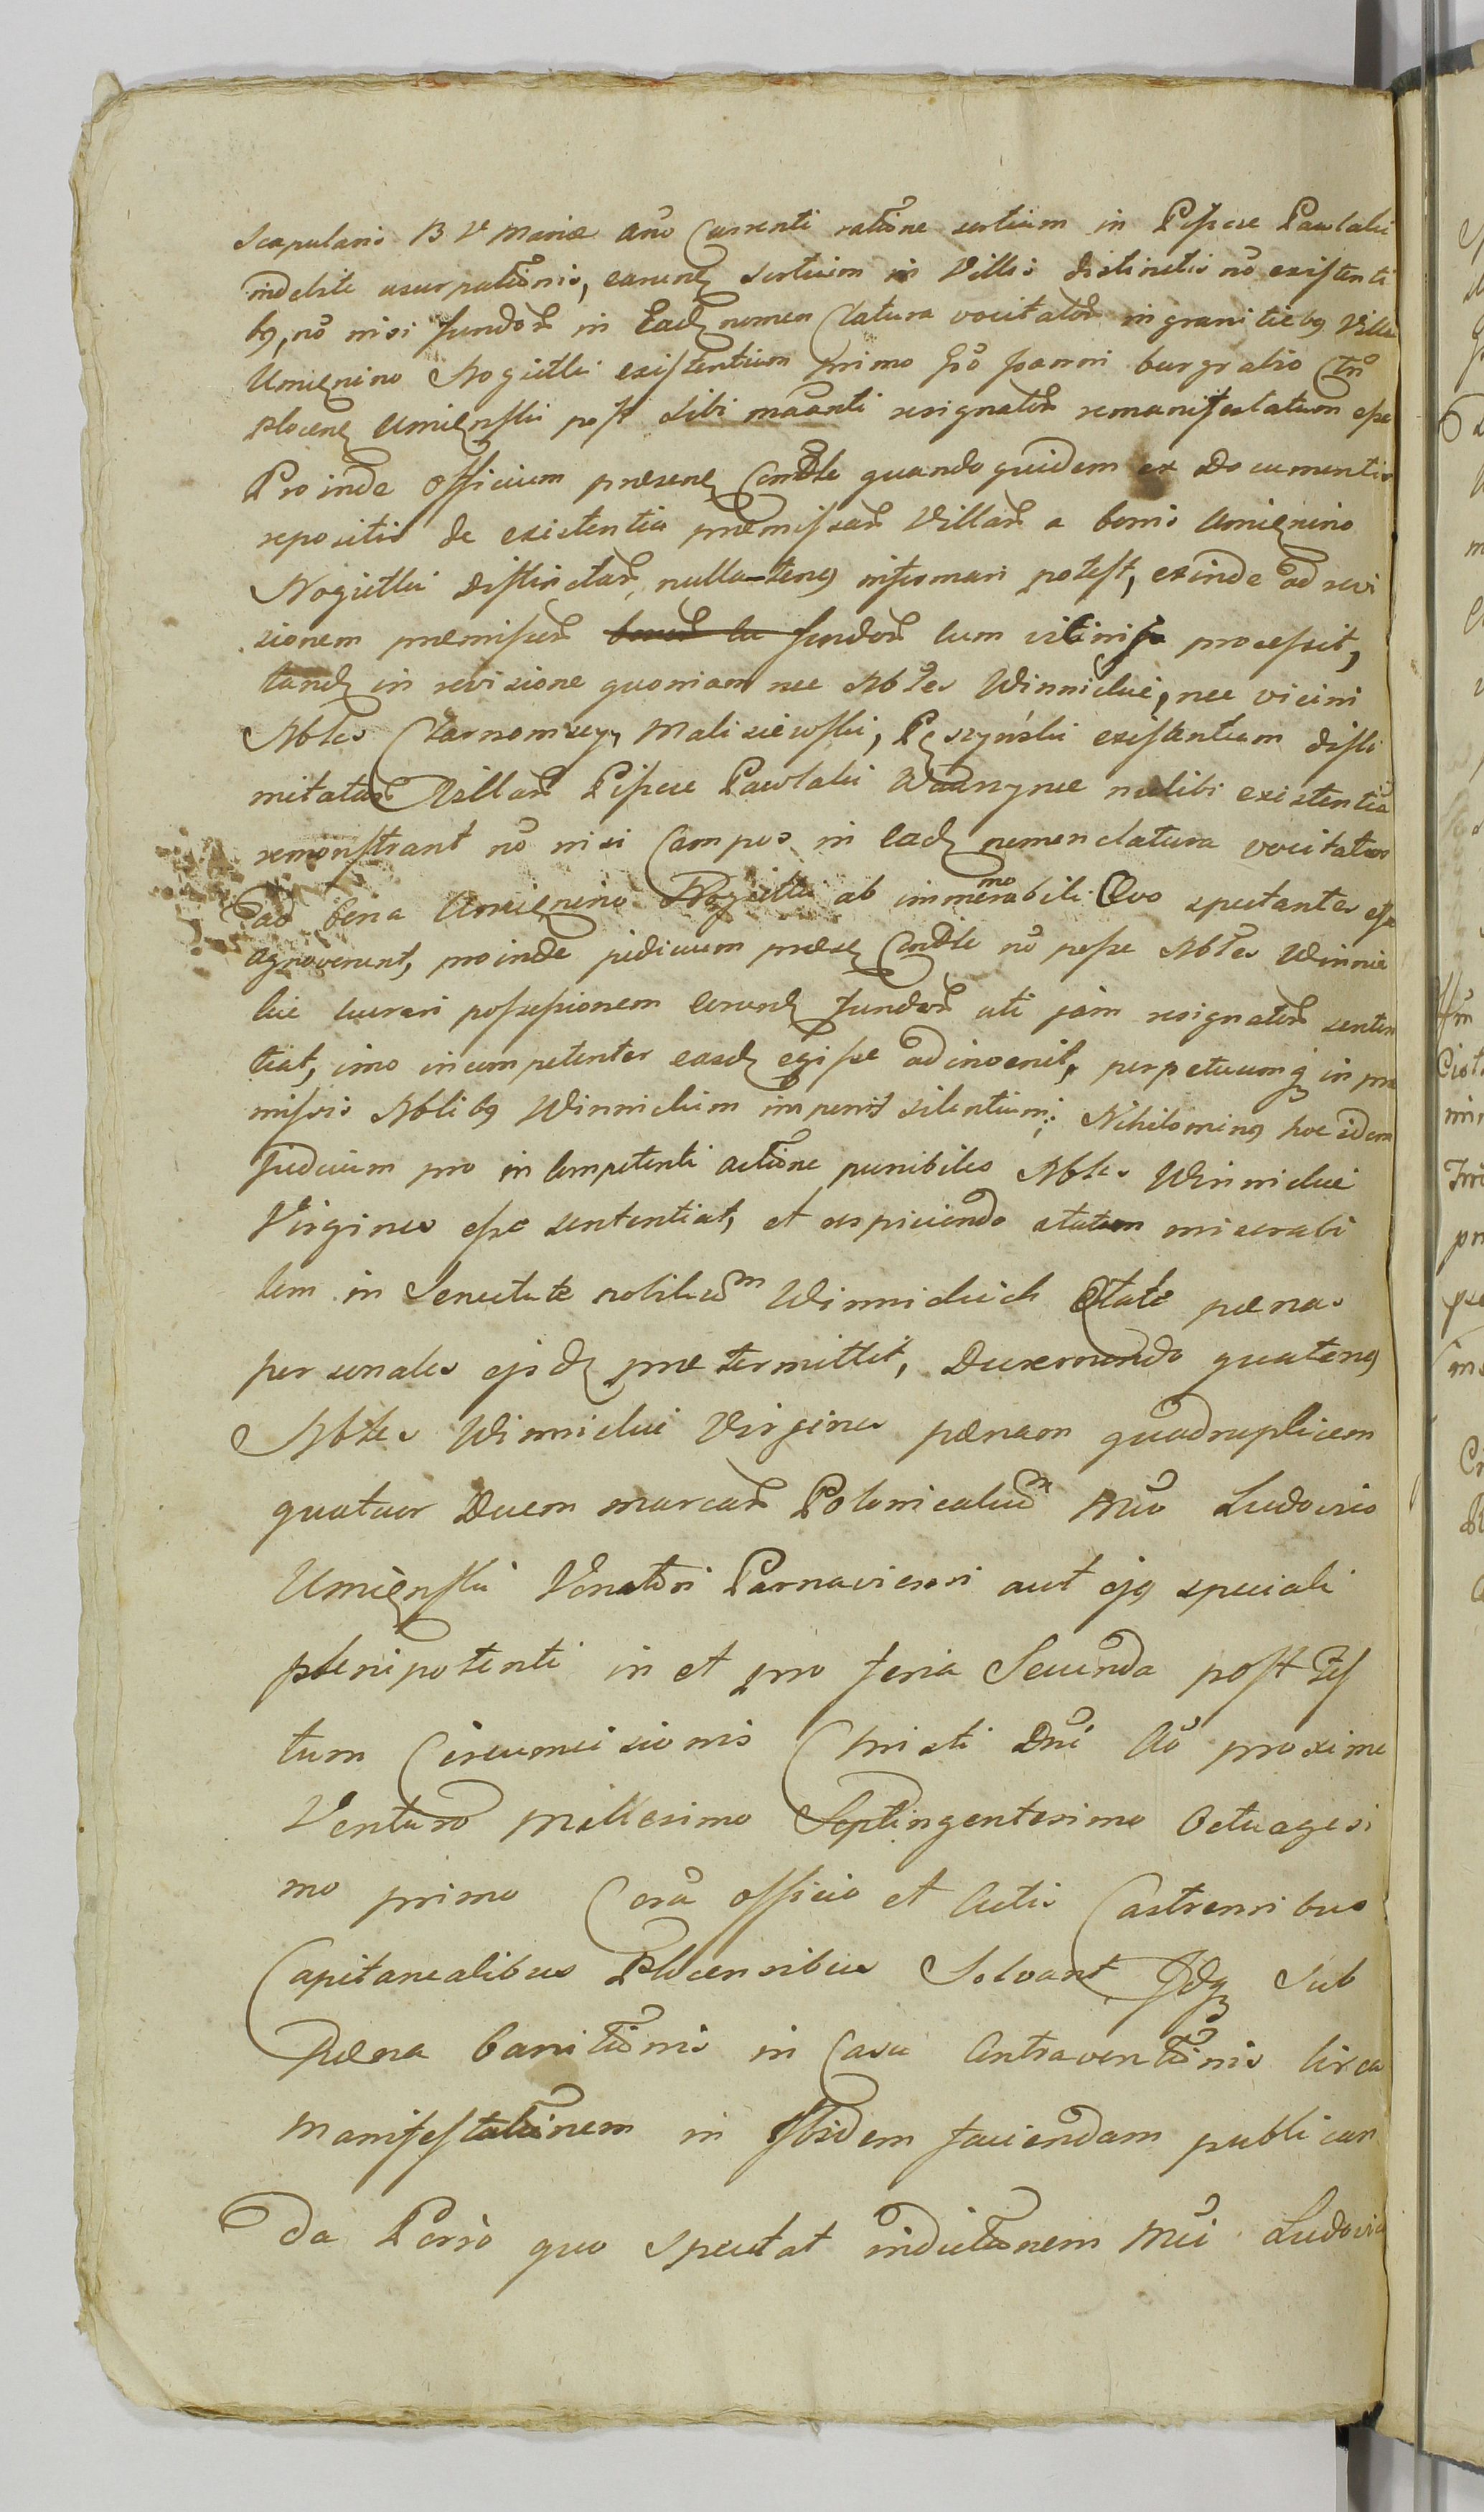 Scapularis B V Mariæ año Currenti ratione sortium in Pissce Pawlaki
indebite usurpationis, earund sortium in Villis distinctis nõ existenti
bg, nõ nisi fundor in Ead nomen Clatura vocitator in granitiebg Villæ
Umienino Nogietki existentium primo Gso Joanni burgrabio Crũ
Plocen Umięnski post sibi mãnti resignator remanifestatum esse
Proinde Officium præsens Cāstrẽ quandoquidem ex Documentis
repositis de existentia præmissar Villar a bonis Umięnino
Nogietki distinctar, nulla-teng informari potest, exinde ad revi
sionem præmissor fundor cum vicinis processit,
tand in revisione quoniam nec Nbles Winnickie, nec vicini
Nbles Czarnomscy, Malisiewski, Pęszyński existentium disli
mitatar Villar Pissce Pawlaki nullibi existentiã
remonstrant nõ nisi Campos in ead nomenclatura vocitatos
ad bona Umięnino Nogietki ab immemorabili Ævo spectantes esse
agnoverunt, proinde judicium præs Cāstrẽ nõ posse Nbles Winnic
kie lucrari possessionem eorund fundor uti jam resignator senten
tiat, imo incompetenter easd egisse ad invenit, perpetuumq in præ
missis Nblibg Winnickim imponit silentium; Nihiloming hoc idem
Judicium pro incompetenti actione punibiles Nbles Winnickie
Virgines esse sententiat, et respiciendo statum miserabi
lem in Senectute nobilium Winnickich Ætate pænas
personales ejsd prætermittit, Decernendo quateng
Nbles Winnickie Virgines pænam quadruplicem
quatuor Decem marcar Polonicalium Mĩco Ludovico
Umięnski Venatori Parnaviensi aut ejg speciali
plenipotenti in et pro feria Secunda post Fes
tum Circumcisionis Christi Dñi Aõ proxime
Venturo Millesimo Septingentesimo Octuagesi
mo primo Corã officio et Actis Castrensibus
Capitanealibus Plocensibus Solvant Idq Sub
Pæna banitionis in Casu Contraventionis circa
Manifestationem in Ibidem faciendam publican
da Porrò quo spectat inductionem Mĩci Ludovici